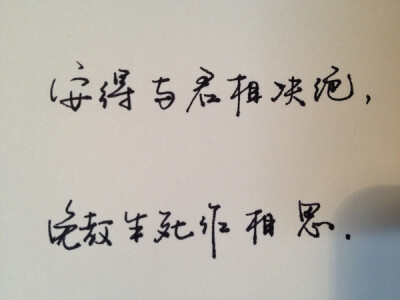 安得与君相决绝，
免教生死作相思.